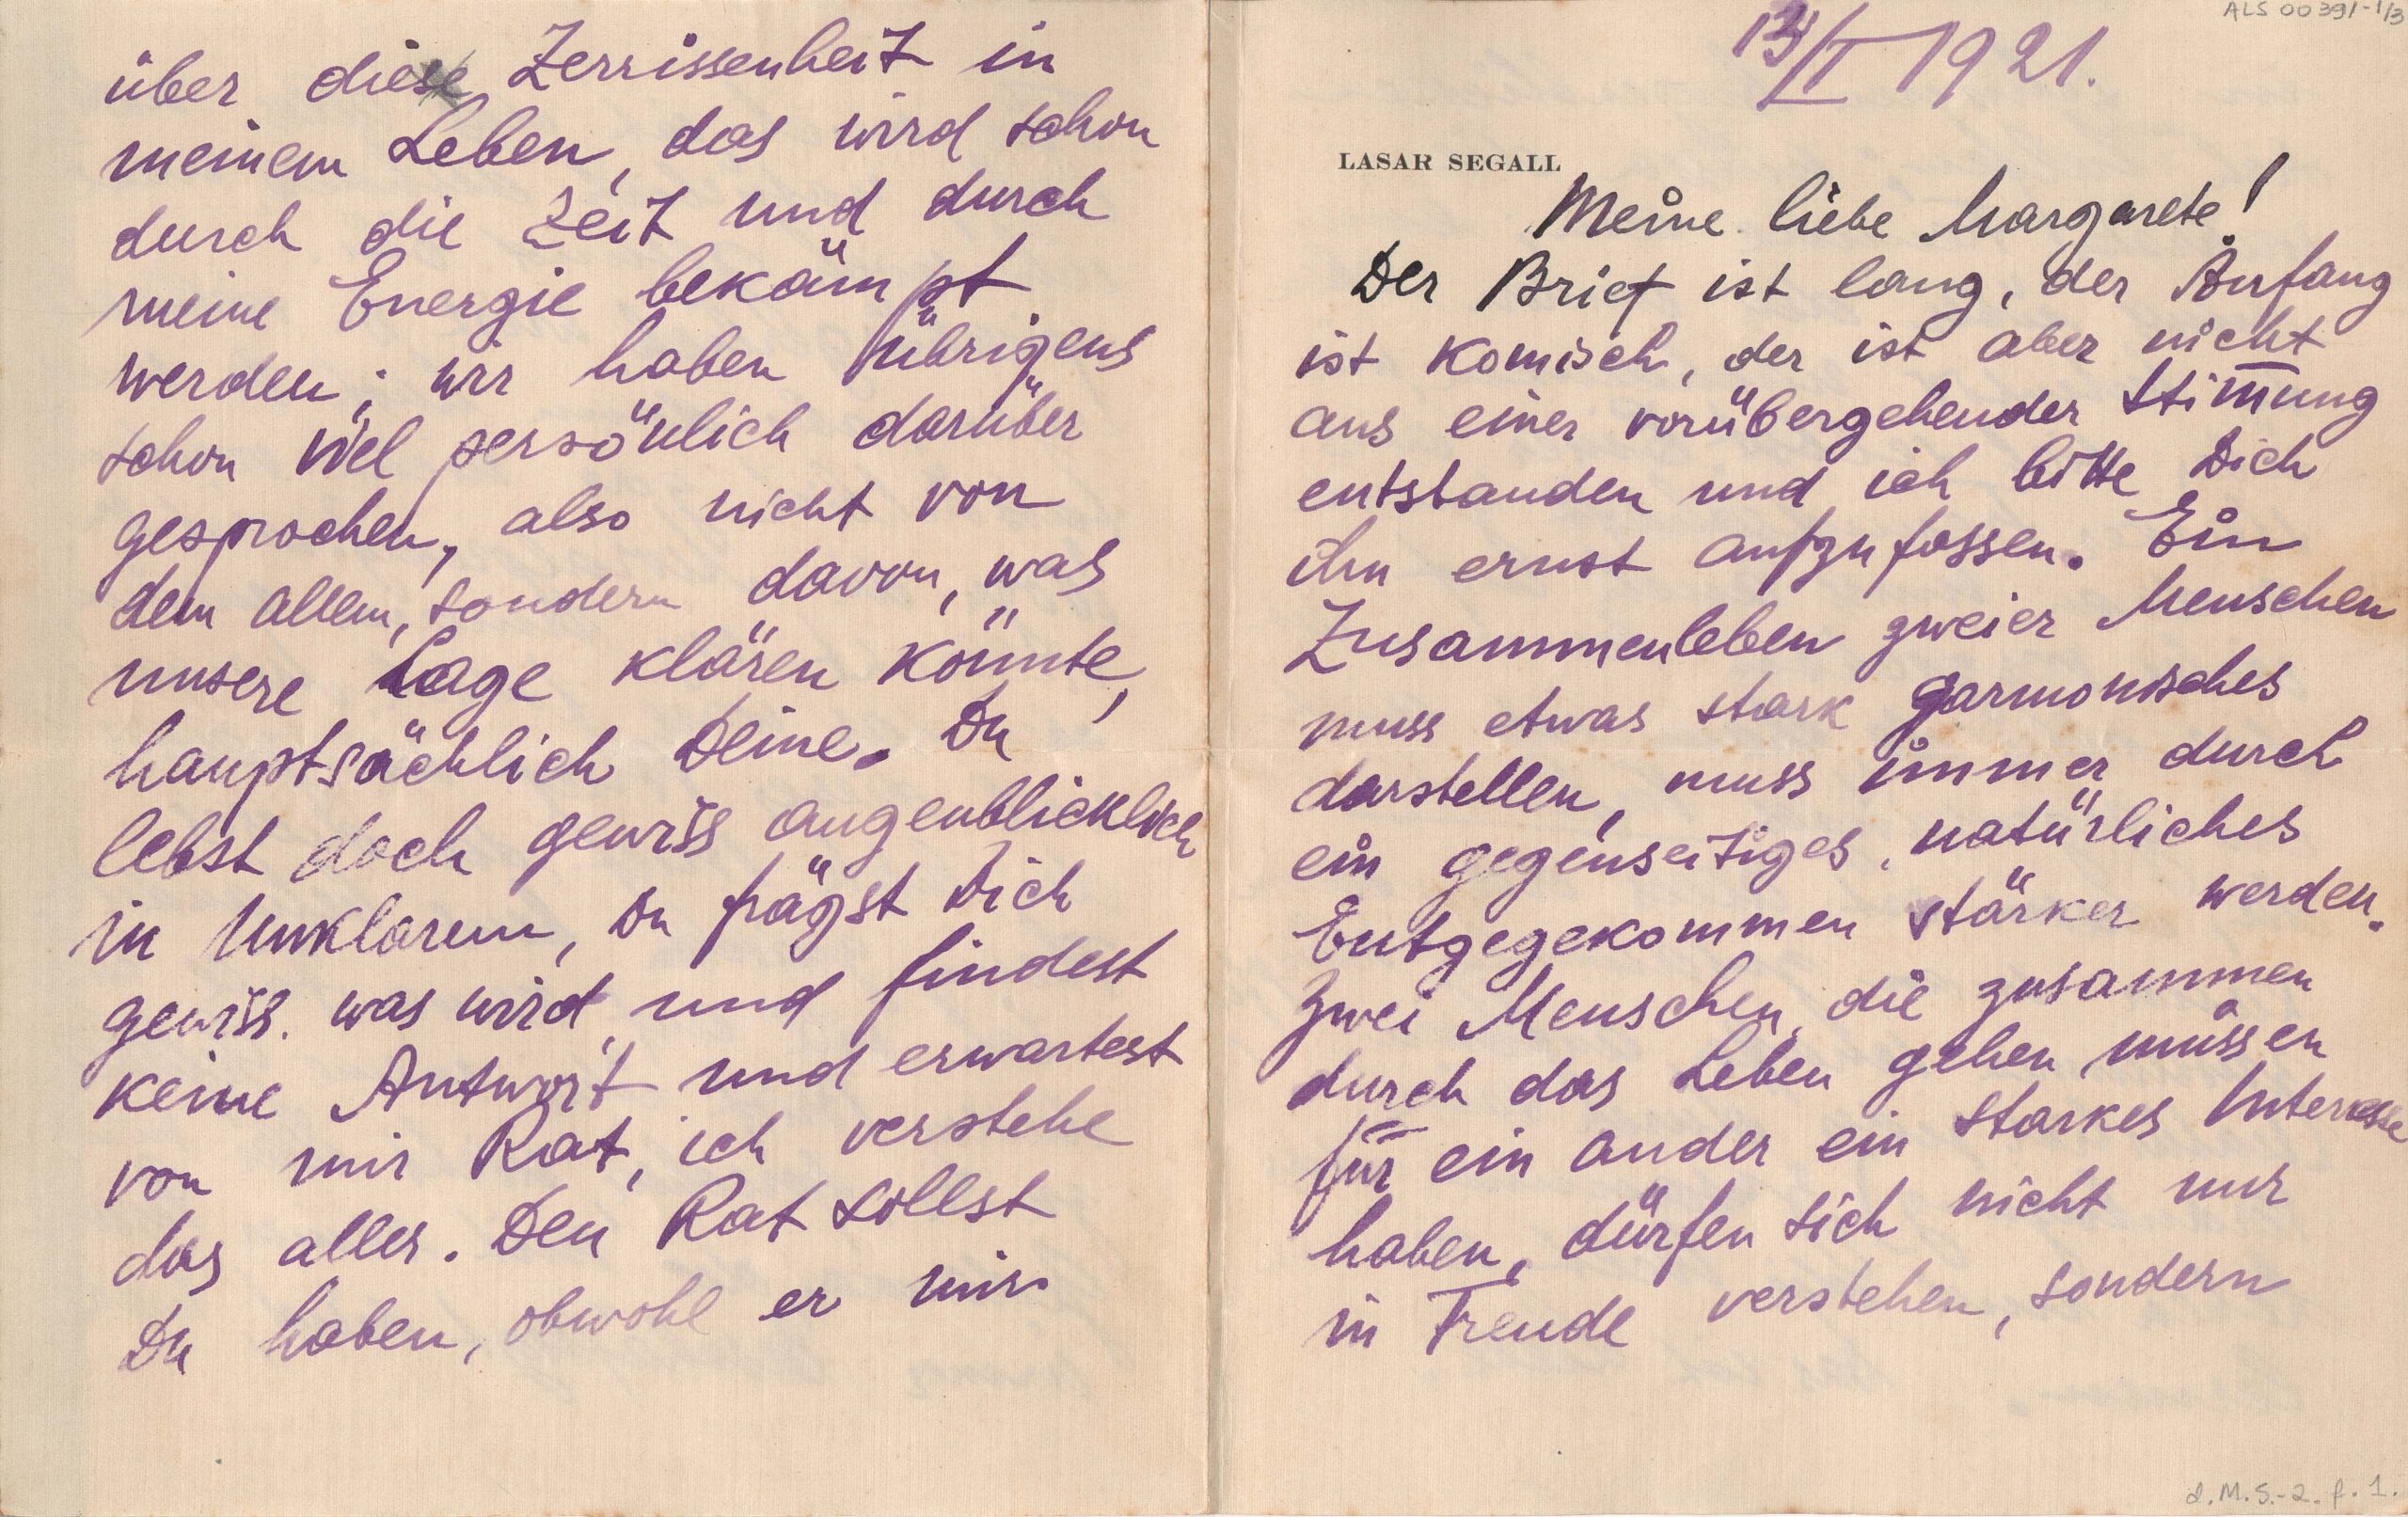 über diese Zerrissenheit in
meinem Leben, das wird schon
durch die Zeit und durch
meine Energie bekämpt
werden; wir haben übrigens
schon viel persönlich darüber
gesprochen, also nicht von
dem allem, sondern davon, was
unsere Lage klären könnte,
hauptsächlich Deine. Du
lebst doch gewiss augenblicklich
in Unklarem, Du frägst Dich
gewiss. was wird, und findest
keine Antwort und erwartest
von mir Rat, ich verstehe
das alles. Den Rat sollst
Du haben, obwohl er mir
ALS 00391-1/3
13/I 1921.
LASAR SEGALL
Meine liebe Margarete!
Der Brief ist lang, der Anfang
ist komisch, der ist aber nicht
aus einer vorübergehender Stim̅ung
entstanden und ich bitte Dich
ihn ernst aufzufassen. Ein
Zusammenleben zweier Menschen
muss etwas stark garmonisches
darstellen, muss immer durch
ein gegenseitiges, natürliches
Entgegekommen stärker werden.
Zwei Menschen, die zusammen
durch das Leben gehen, müssen
für ein ander ein starkes Interesse
haben, dürfen sich nicht nur
in Freude verstehen, sondern
d.M.S.-2. f. 1.